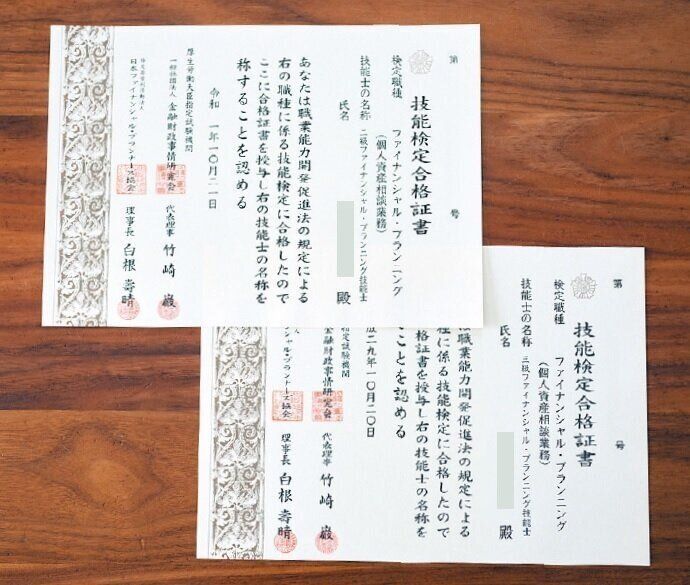 第　　　号
技能検定合格証書
検定職種　ファイナンシャル・プランニング
（個人資産相談業務）
技能士の名称　二級ファイナンシャル・プランニング技能士
氏名　　　殿
あなたは職業能力開発促進法の規定による
右の職種に係る技能検定に合格したので
ここに合格証書を授与し右の技能士の名称を
称することを認める
令和　一年一〇月二一日
厚生労働大臣指定試験機関
一般社団法人　金融財政事情研究会　代表理事　竹崎　巌
特定非営利活動法人
日本ファイナンシャル・プランナーズ協会　理事長　白根　壽晴
第　　　号
技能検定合格証書
検定職種　ファイナンシャル・プランニング
（個人資産相談業務）
技能士の名称　三級ファイナンシャル・プランニング技能士
氏名　　　殿
職業能力開発促進法の規定による
種に係る技能検定に合格したので
合格証書を授与し右の技能士の名称を
ことを認める
二九年一〇月二〇日
指定試験機関
金融財政事情研究会　代表理事　竹崎　巌
ファイナンシャル・プランナーズ協会　理事長　白根　壽晴